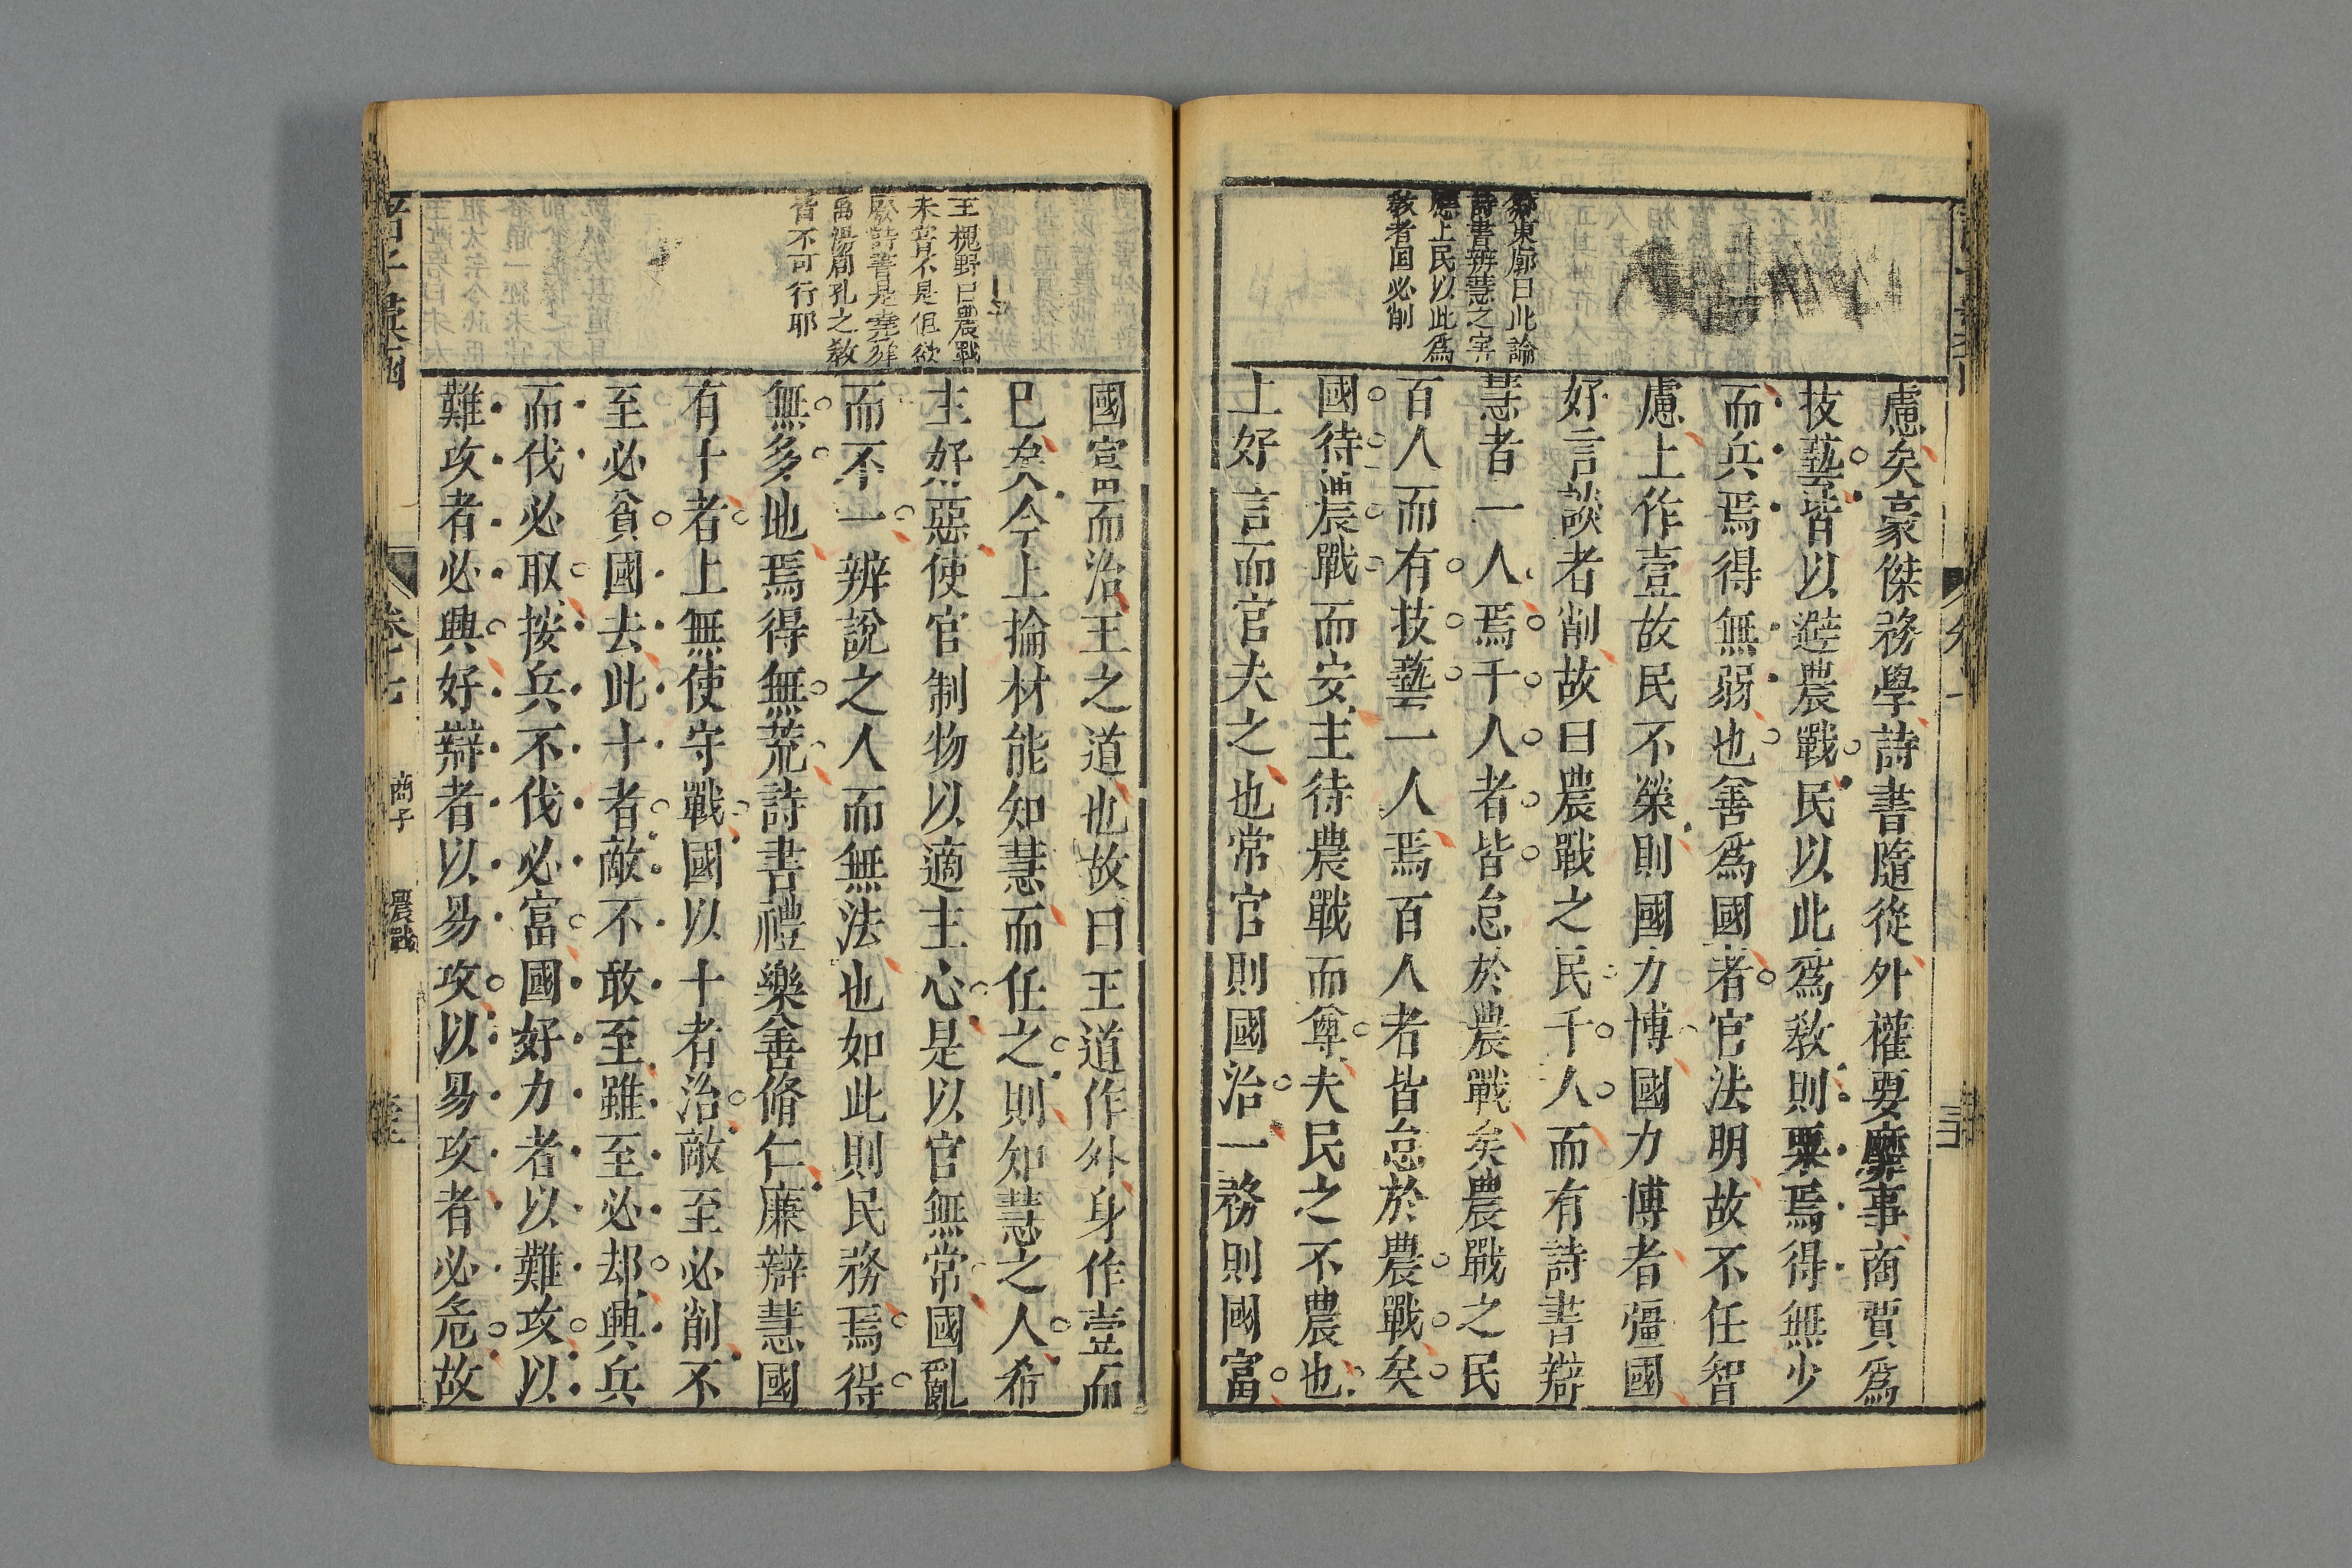 鄒東廓曰此論
詩書辨慧之害
應上民以此為
教者国必削
慮矣豪傑務學詩書隨從外權要靡事商賈爲
技藝皆以避農戰民以此爲教則粟焉得無少
而兵焉得無弱也善爲國者官法明故不任智
慮上作壹故民不榮則國力博國力博者彊國
好言談者削故曰農戰之民千人而有詩書辯
慧者一人焉千人者皆怠於農戰矣農戰之民
百人而有技藝一人焉百人者皆怠於農戰矣
國待農戰而安主待農戰而尊夫民之不農也
上好言而官夫之也常官則國治一務則國富
王槐野曰農戰
未嘗不是但欲
廢詩書是堯舜
禹湯周孔之教
皆不可行耶
國富而治王之道也故曰王道作外身作壹而
已矣今上掄材能知慧而任之則知慧之人希
主好惡使官制物以適主心是以官無常國亂
而不一辨說之人而無法也如此則民務焉得
無多地焉得無荒詩書禮樂善脩仁廉辯慧國
有十者上無使守戰國以十者治敵至必削不
至必貧國去此十者敵不敢至雖至必却興兵
而伐必取按兵不伐必富國好力者以難攻以
難攻者必興好辯者以易攻以易攻者必危故
卷七
商子
農戰